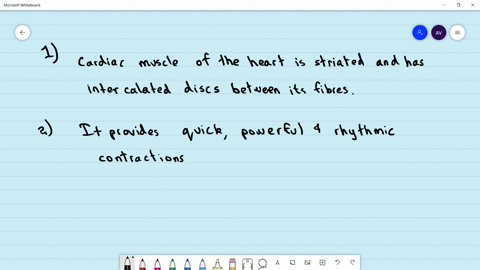 Microsoft Whiteboard
AV
1) Cardiac muscle of the heart is striated and has
intercalated discs between its fibres.
2) It provides quick, powerful & rhythmic
contractions
A